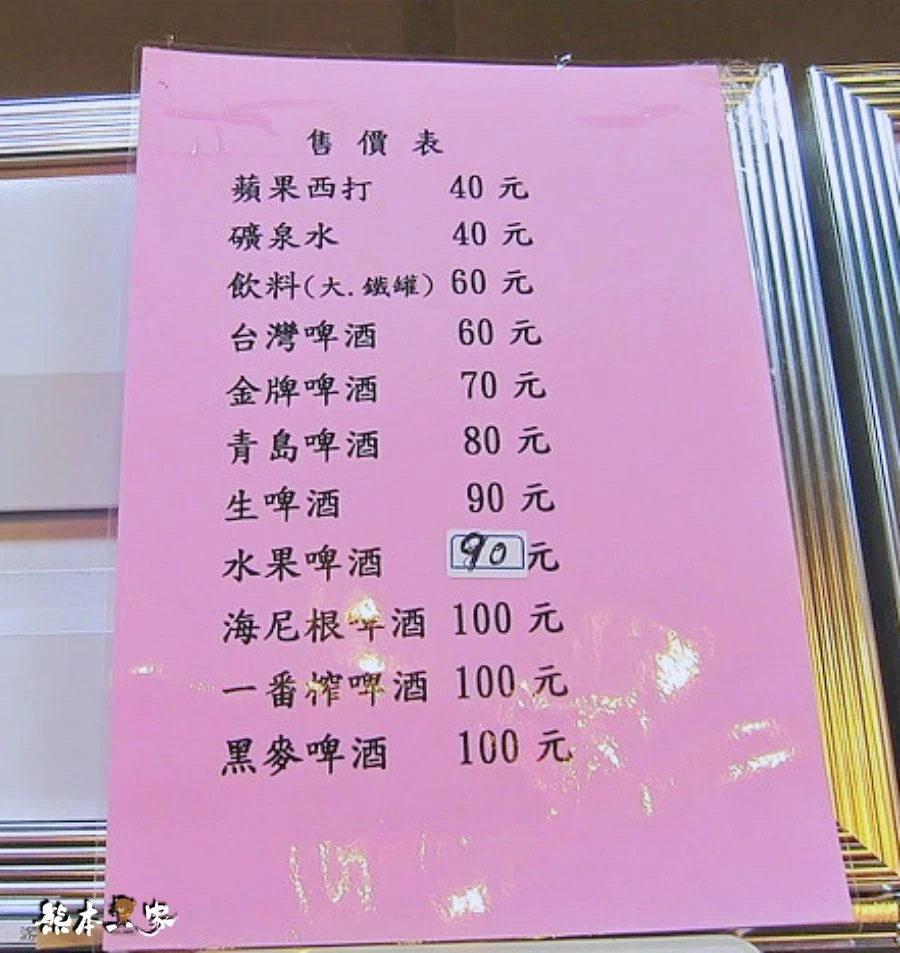 售價表
蘋果西打 40 元
礦泉水 40 元
飲料(大.鐵罐) 60 元
台灣啤酒 60 元
金牌啤酒 70 元
青島啤酒 80 元
生啤酒 90 元
水果啤酒 90 元
海尼根啤酒 100 元
一番榨啤酒 100 元
黑麥啤酒 100 元
熊本一家